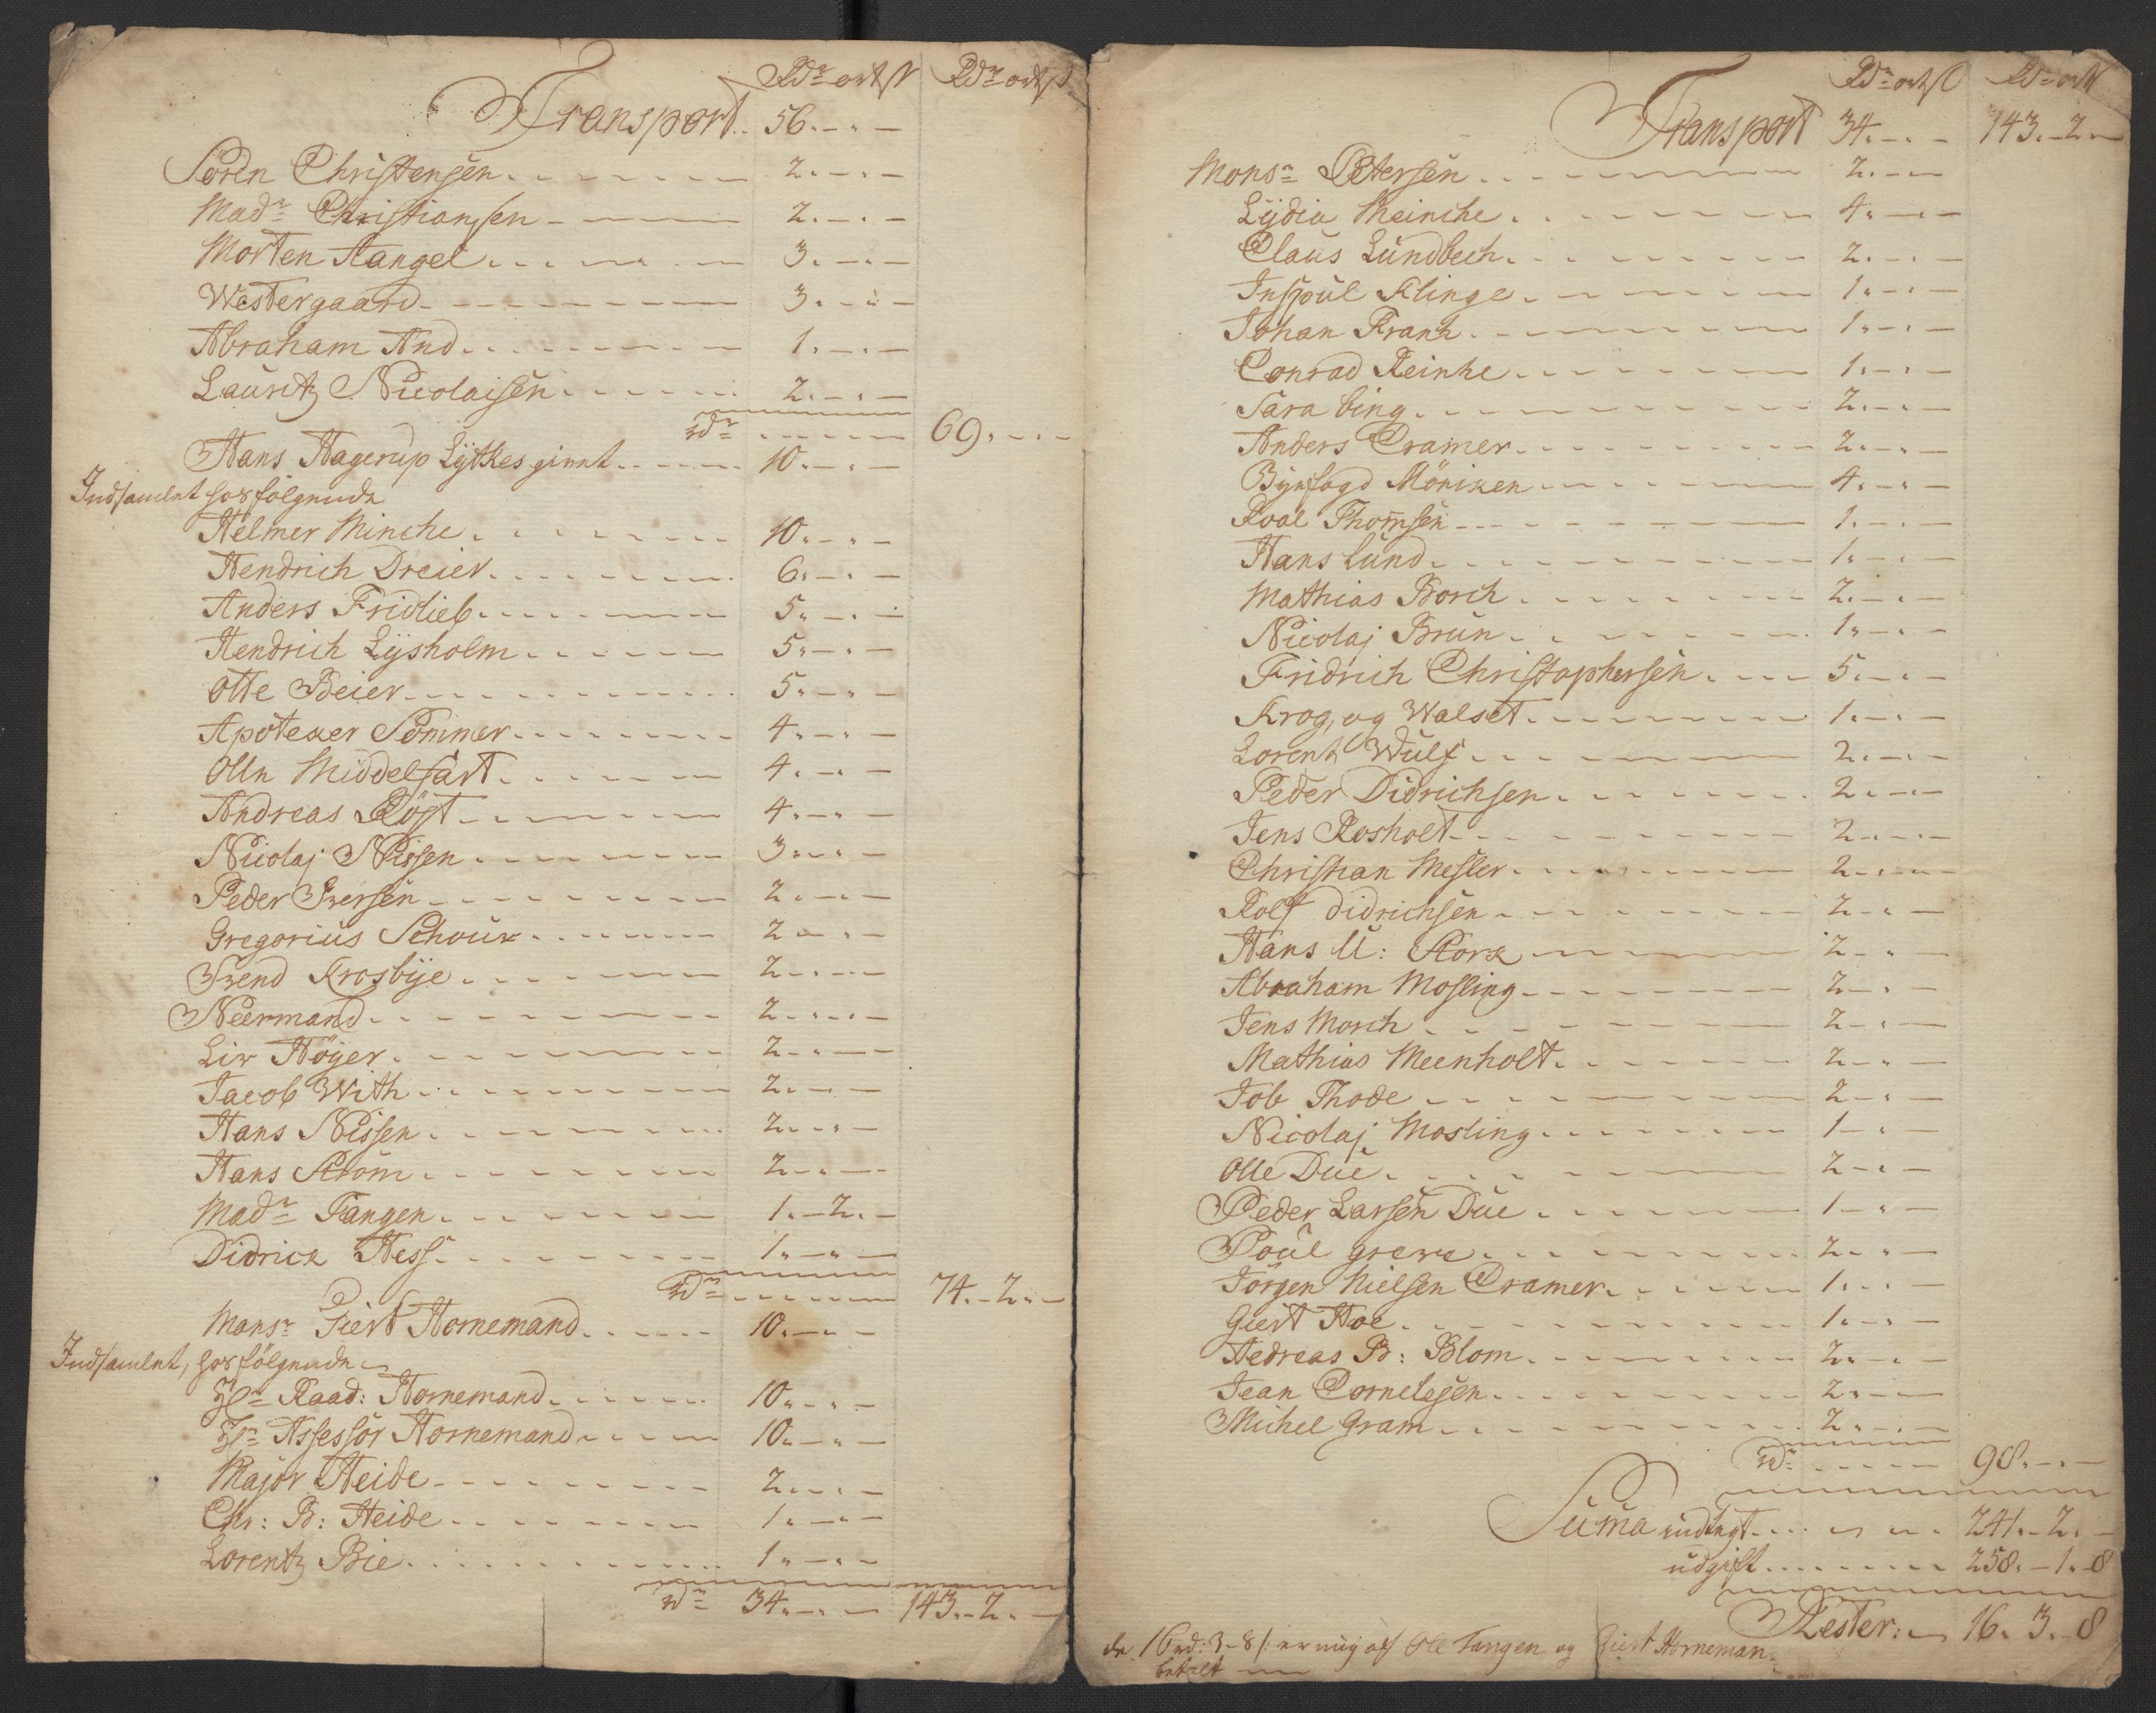 Rdr ort s Rdr ort s
Transport.. 56.-.-
Sören Christensen 2.-.-
Madr Christiansen 2.-.-
Morten Hangel 3.-.-
Westergaard 3.-.-
Abraham And 1.-.-
Lauritz Nicolaisen 2.-.-
rdr 69.-.-
Hans Hagerup Lÿtkes giont 10.-.-
Indsamlet hos følgende
Helmer Minche 10.-.-
Hendrich Dreier 6.-.-
Anders Fridlieb 5.-.-
Hendrich Lÿsholm 5.-.-
Otte Beier 5.-.-
Apoteker Sommer 4.-.-
Olle Middelfart 4.-.-
Andreas Röst 4.-.-
Nicolaj Nissen 3.-.-
Peder Iversen 2.-.-
Gregorius Schoux 2.-.-
Trend Krosbÿe 2.-.-
Neermand 2.-.-
Liv Höyer 2.-.-
Jacob With 2.-.-
Hans Nissen 2.-.-
Hans Strom 2.-.-
Madr Tangen 1.-2.-
Didrick Hess 1.-.-
Rdr 74.-2.-
Monsr Giert Hornemand 10.-.-
Indsamlet, hos følgende
Hr Raad: Hornemand 10.-.-
Hr Assessor Hornemand 10.-.-
Major Heide 2.-.-
Chr: B: Heide 1.-.-
Lorentz Bie 1.-.-
rdr 34.-.- 143.-2.-
Rdr ort s Rdr ort s
Transport 34.-.- 143.-2.-
Monsr Petersen 2.-.-
Lÿdia Meinche 4.-.-
Claus Lundbech 2.-.-
Inspoul Klinge 1.-.-
Johan Frank 1.-.-
Conrad Reinke 1.-.-
Sara bing 2.-.-
Anders Cramer 2.-.-
Bÿefogd Mönixen 4.-.-
Roal Thomsen 1.-.-
Hans Lund 1.-.-
Mathias Borch 2.-.-
Nicolaj Brun 1.-.-
Fridrich Christophersen 5.-.-
Krog, og Walset 1.-.-
Lorentz Wulf 2.-.-
Peder Didrichsen 2.-.-
Jens Rosholt 2.-.-
Christian Mesler 2.-.-
Rolf didrichsen 2.-.-
Hans U: Stork 2.-.-
Abraham Mosling 2.-.-
Jens Morch 2.-.-
Mathias Meenholt 2.-.-
Job Thode 2.-.-
Nicolaj Mosling 1.-.-
Olle Due 2.-.-
Peder Larsen Due 1.-.-
Poul greve 2.-.-
Jörgen Nielsen Cramer 1.-.-
Giert Hoe 1.-.-
Aedreas B: Blom 2.-.-
Jean Cornelesen 2.-.-
Michel Gram 2.-.-
rdr 98.-.-
Suma indtegt 241.-2.-
udgift 258.-1.-8
Rester: 16. 3.-8
de 16 rd: 3-8 s: er mig af Ole Tangen og Giert Horneman
betalt